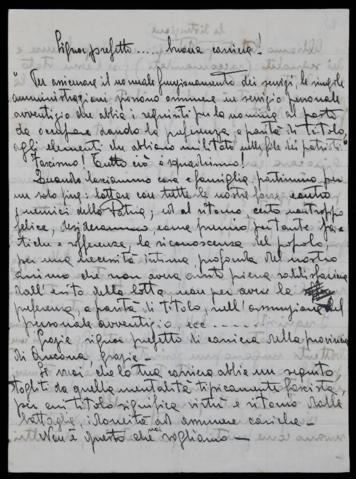 Signor prefetto ..... buona carriera!
"Per assicurare il normale funzionamento dei servizi, le singole
amministrazioni possono assumere in servizio personale
avventizio che abbia i requisiti per la nomina al posto
da occupare dando la preferenza, a parità di titolo,
agli elementi che abbiano militato nelle file dei patrioti"
Benissimo! Tutto ciò è squisitissimo!
Quando lasciammo casa e famiglia, partimmo per
un solo fine: lottare con tutte le nostre forze contro
i nemici della Patria; ed al ritorno, certo non troppo
felice, desideravamo come premio per tante fa-
tiche e sofferenze, la riconoscenza del popolo,
per una necessità intima profonda del nostro
animo che non aveva avuto piena soddisfazione
dall'esito della lotta, non per avere la
preferenza, a parità di titolo, nell'assunzione del
personale avventizio, ecc ......
Grazie signor prefetto di carriera della provincia
di Ancona, grazie -
Se vuoi che la tua carriera abbia un seguito
togliti da quella mentalità tipicamente fascista,
per cui titolo significa virtù e ritorno dalla
battaglia, idoneità ad assumere cariche -
Non è questo che noi vogliamo -